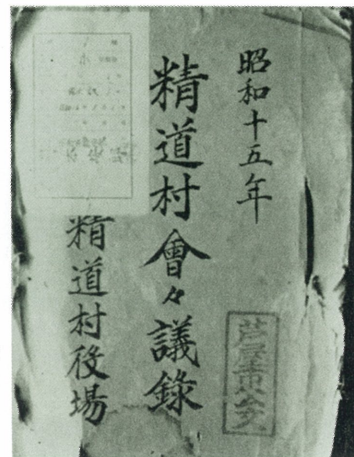 昭和十五年
精道村會々議錄
精道村役場
芦屋市公文